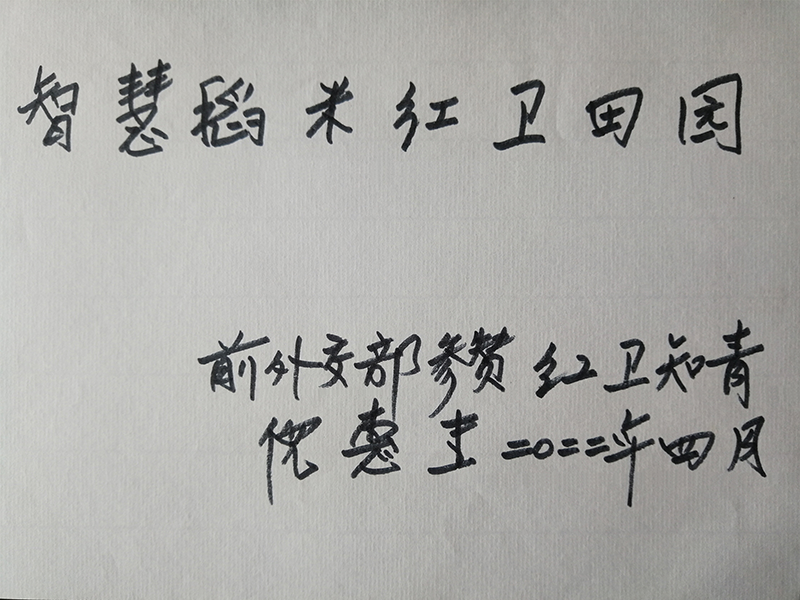 智慧稻米红卫田园
前外交部参赞红卫知青
倪惠圭二〇二二年四月